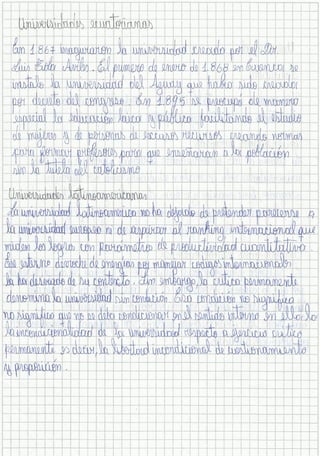 Universidades ecuatorianas
En 1867 inauguraron la universidad creada por el Dr
Luis Avilés. El primero de enero de 1868 en Cuenca se
instaló la universidad del Azuay que había sido creada
por decreto del congreso. En 1895 se preocupa de manera
especial la educación laica y pública facilitando el estudio
de mujeres y de personas de escasos recursos creando normas
para formar profesores para que enseñaran a la población
sin la tutela del catolicismo
Universidades Latinoamericanas
La universidad latinoamericana no ha dejado de pretender parecerse a
la universidad europea ni de aspirar al ranking internacional que
miden los logros con parámetros de productividad cuantitativa
Ese derroche de energías por manejar códigos internacionales
la ha desviado de su contexto. Sin embargo, la crítica permanente
denomina la universidad sin condición. Esa condición no significa
no significa que no es dato condicionar en el sentido interno en ello
la incondicionalidad de la universidad respecto a ejercicio crítico
permanente es decir, la libertad incondicional de cuestionamiento
y proposición.